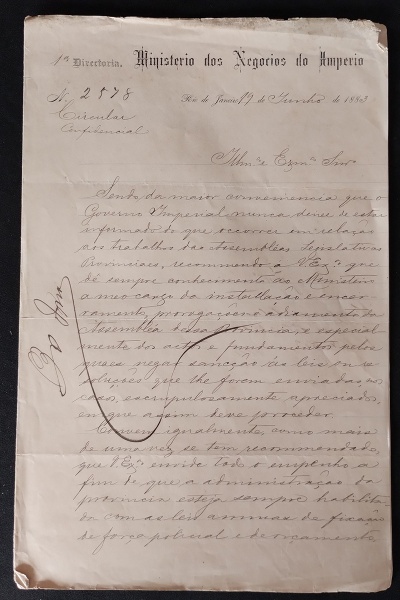 1ª Directoria. Ministerio dos Negocios do Imperio
N. 2578 Rio de Janeiro, 19 de Junho de 1883
Circular
Confidencial
Illmo. e Exmo. Snr.
Sendo da maior conveniencia que o
Governo Imperial nunca deixe de estar
informado do que occorrer em relação
aos trabalhos das Assembléas Legislativas
Provinciaes, recommendo a V. Exª. que
dê sempre conhecimento ao Ministerio
a meo cargo da installação e encer-
ramento, prorogação ou adiamento da
Assembléa dessa provincia, e especial-
mente dos actos e fundamentos pelos
quaes negar sancção ás leis ou re-
soluções que lhe forem enviadas, os
casos, escrupulosamente apreciados,
em que assim deve proceder.
Convem igualmente, como mais
de uma vez se tem recommendado,
que V. Exª. envide todo o empenho a
fim de que a administração da
provincia esteja sempre habilita-
da com as leis annuas de fixação
de força policial e de orçamento